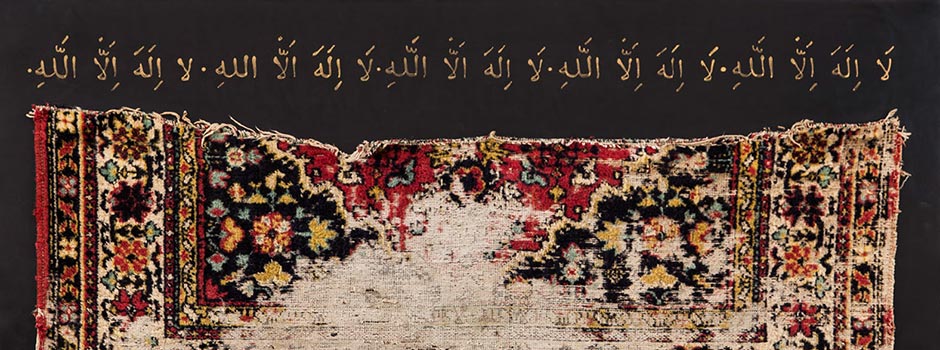 لَا اِلَهَ اِلَّا اللَّهِ. لَا اِلَهَ اِلَّا اللَّهِ. لَا اِلَهَ اَلَّا اللَّهِ. لَا اِلَهَ اَلَّا اللهِ. لا اِلَهَ اِلَّا اللَّهِ.